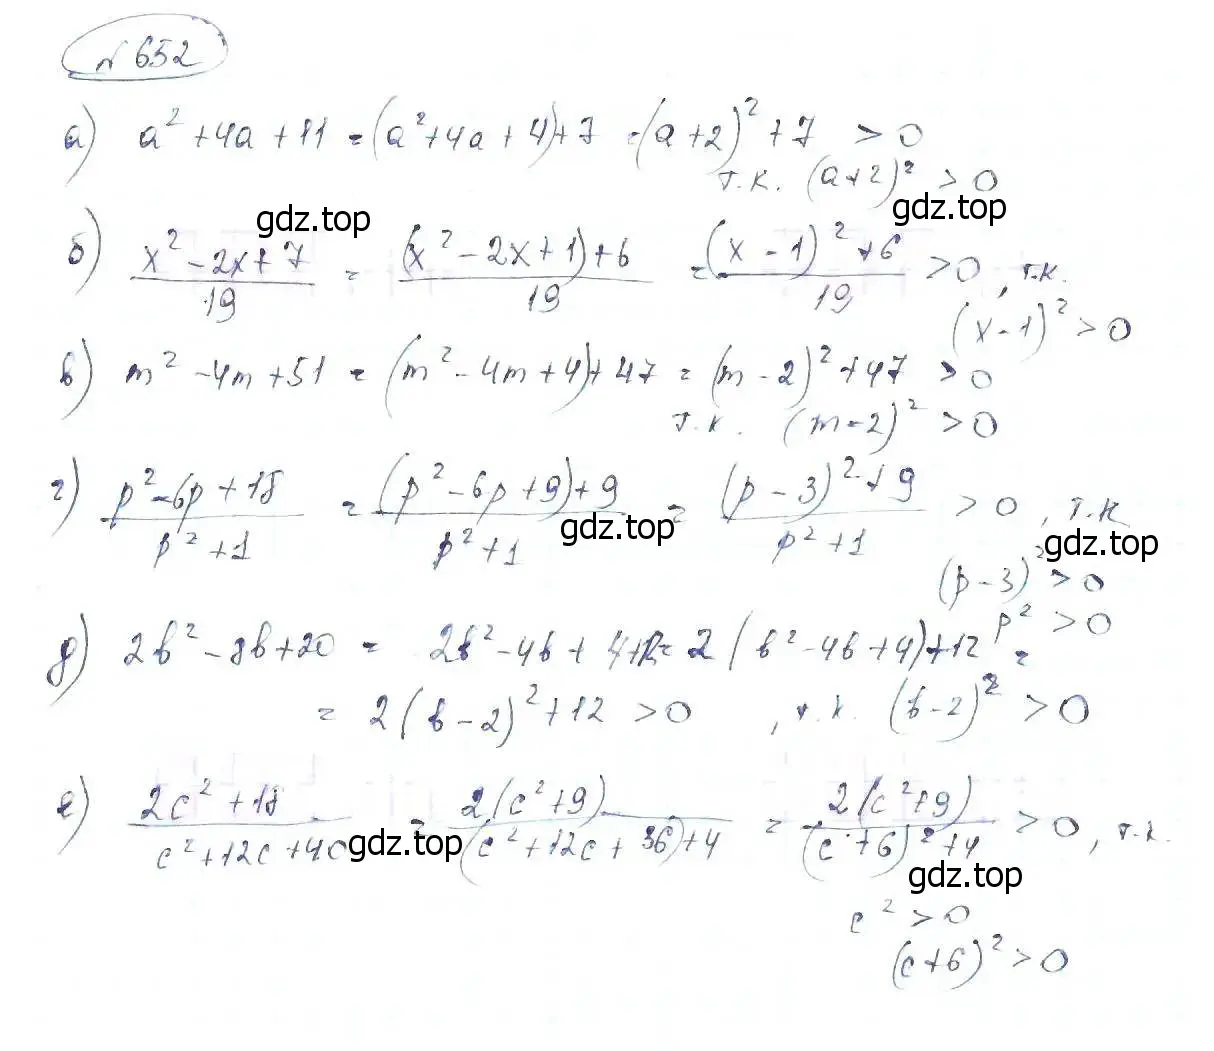 № 652
а) a² + 4a + 11 = (a² + 4a + 4) + 7 = (a + 2)² + 7 > 0
т.к. (a + 2)² > 0
gdz.top gdz.top
б) (x² - 2x + 7)/19 = ((x² - 2x + 1) + 6)/19 = ((x - 1)² + 6)/19 > 0, т.к.
(x - 1)² > 0
в) m² - 4m + 51 = (m² - 4m + 4) + 47 = (m - 2)² + 47 > 0
т.к. (m - 2)² > 0
г) (p² - 6p + 18)/(p² + 1) = ((p² - 6p + 9) + 9)/(p² + 1) = ((p - 3)² + 9)/(p² + 1) > 0, т.к
gdz.top gdz.top
(p - 3)² > 0
p² > 0
д) 2b² - 8b + 20 = 2b² - 4b + 4 + 12 = 2(b² - 4b + 4) + 12 =
= 2(b - 2)² + 12 > 0, т.к. (b - 2)² > 0
е) (2c² + 18)/(c² + 12c + 40) = 2(c² + 9)/((c² + 12c + 36) + 4) = 2(c² + 9)/((c + 6)² + 4) > 0, т.к.
gdz.top gdz.top
c² > 0
(c + 6)² > 0